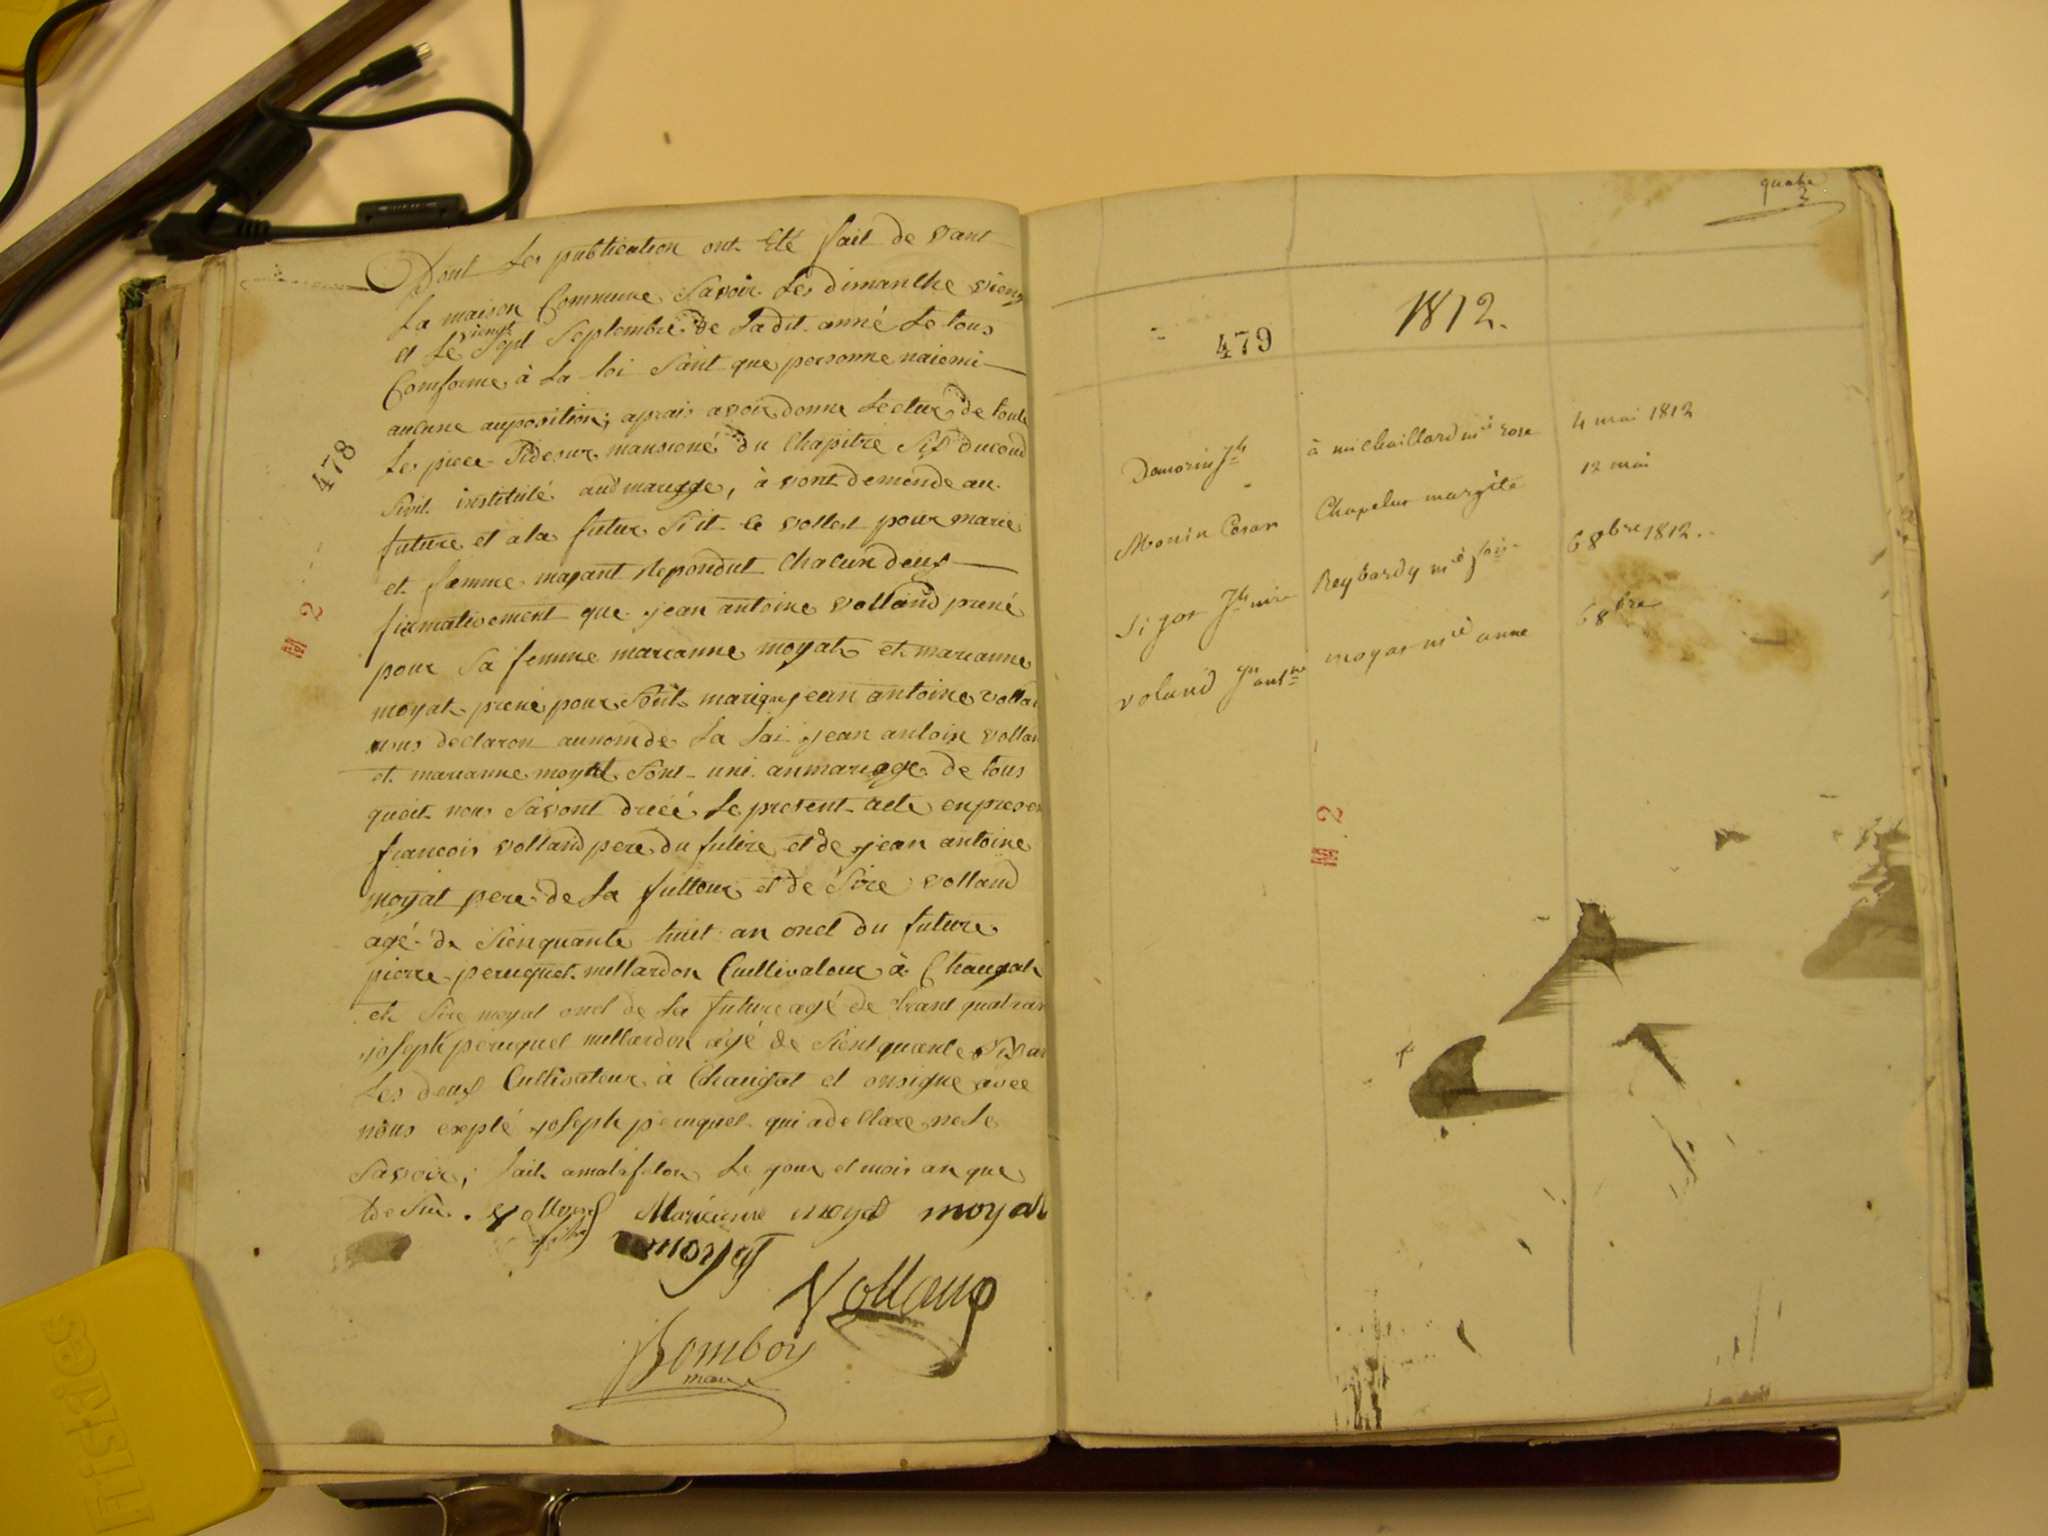 Dont Les publication ont Eté fait de vant
La maison Commune Savoir Les dimanche vieng
et Le viengt Sept Septembre de Ladit anné Le tous
Comforme à La loi Sant que personne naiemi
aucune auposition; aprais avoir donne Lecture de toute
Les piece Sidesur mansioné du Chapitre Six ducoud
Sivil institulé aud mariage, à vont demende au
future et a la futur Si it le vollest pour marie
et famme mayant Repondut Chacun deux
firmativement que jean antoine volland prené
pour Sa femme marianne moyat et marianne
moyat prené pour Sont marique jean antoine vollan
nous declaron aunomde La Lai jean antoin vollan
et marianne moyat Sont uni anmariage de tous
quoit nous Savont drecé Le present acte enpresen
francois volland pere du future et de jean antoine
moyat pere de La futteur et de Sire volland
agé de Sienquante huit an oncl du future
pierre peruquet millardon Cuillivateur à Chaugat
et Sire moyat oncl de La future agé de trant quatr an
joseph peruquet millardon agé de Sientquante Six an
Les deux Cultivateur à Chaugat et onsigne avec
nous exepté joseph peruquet qui a declare ne Le
Savoir; fait a matafelon Le jour et mois an que
de Sur. Volland Marianne moyat moyat
fils moyat
Volland
Bomboy
maire
478
M 2
quatre
479 1812.
Damorin Jh à michaillard mie rose 4 mai 1812
Monin Cesar Chapelus margite 12 mai
Sijos Jh Reybardy mie 6 8bre 1812.
voland Jn antne moyat mie anne 6 8bre
M. 2
HistAcs